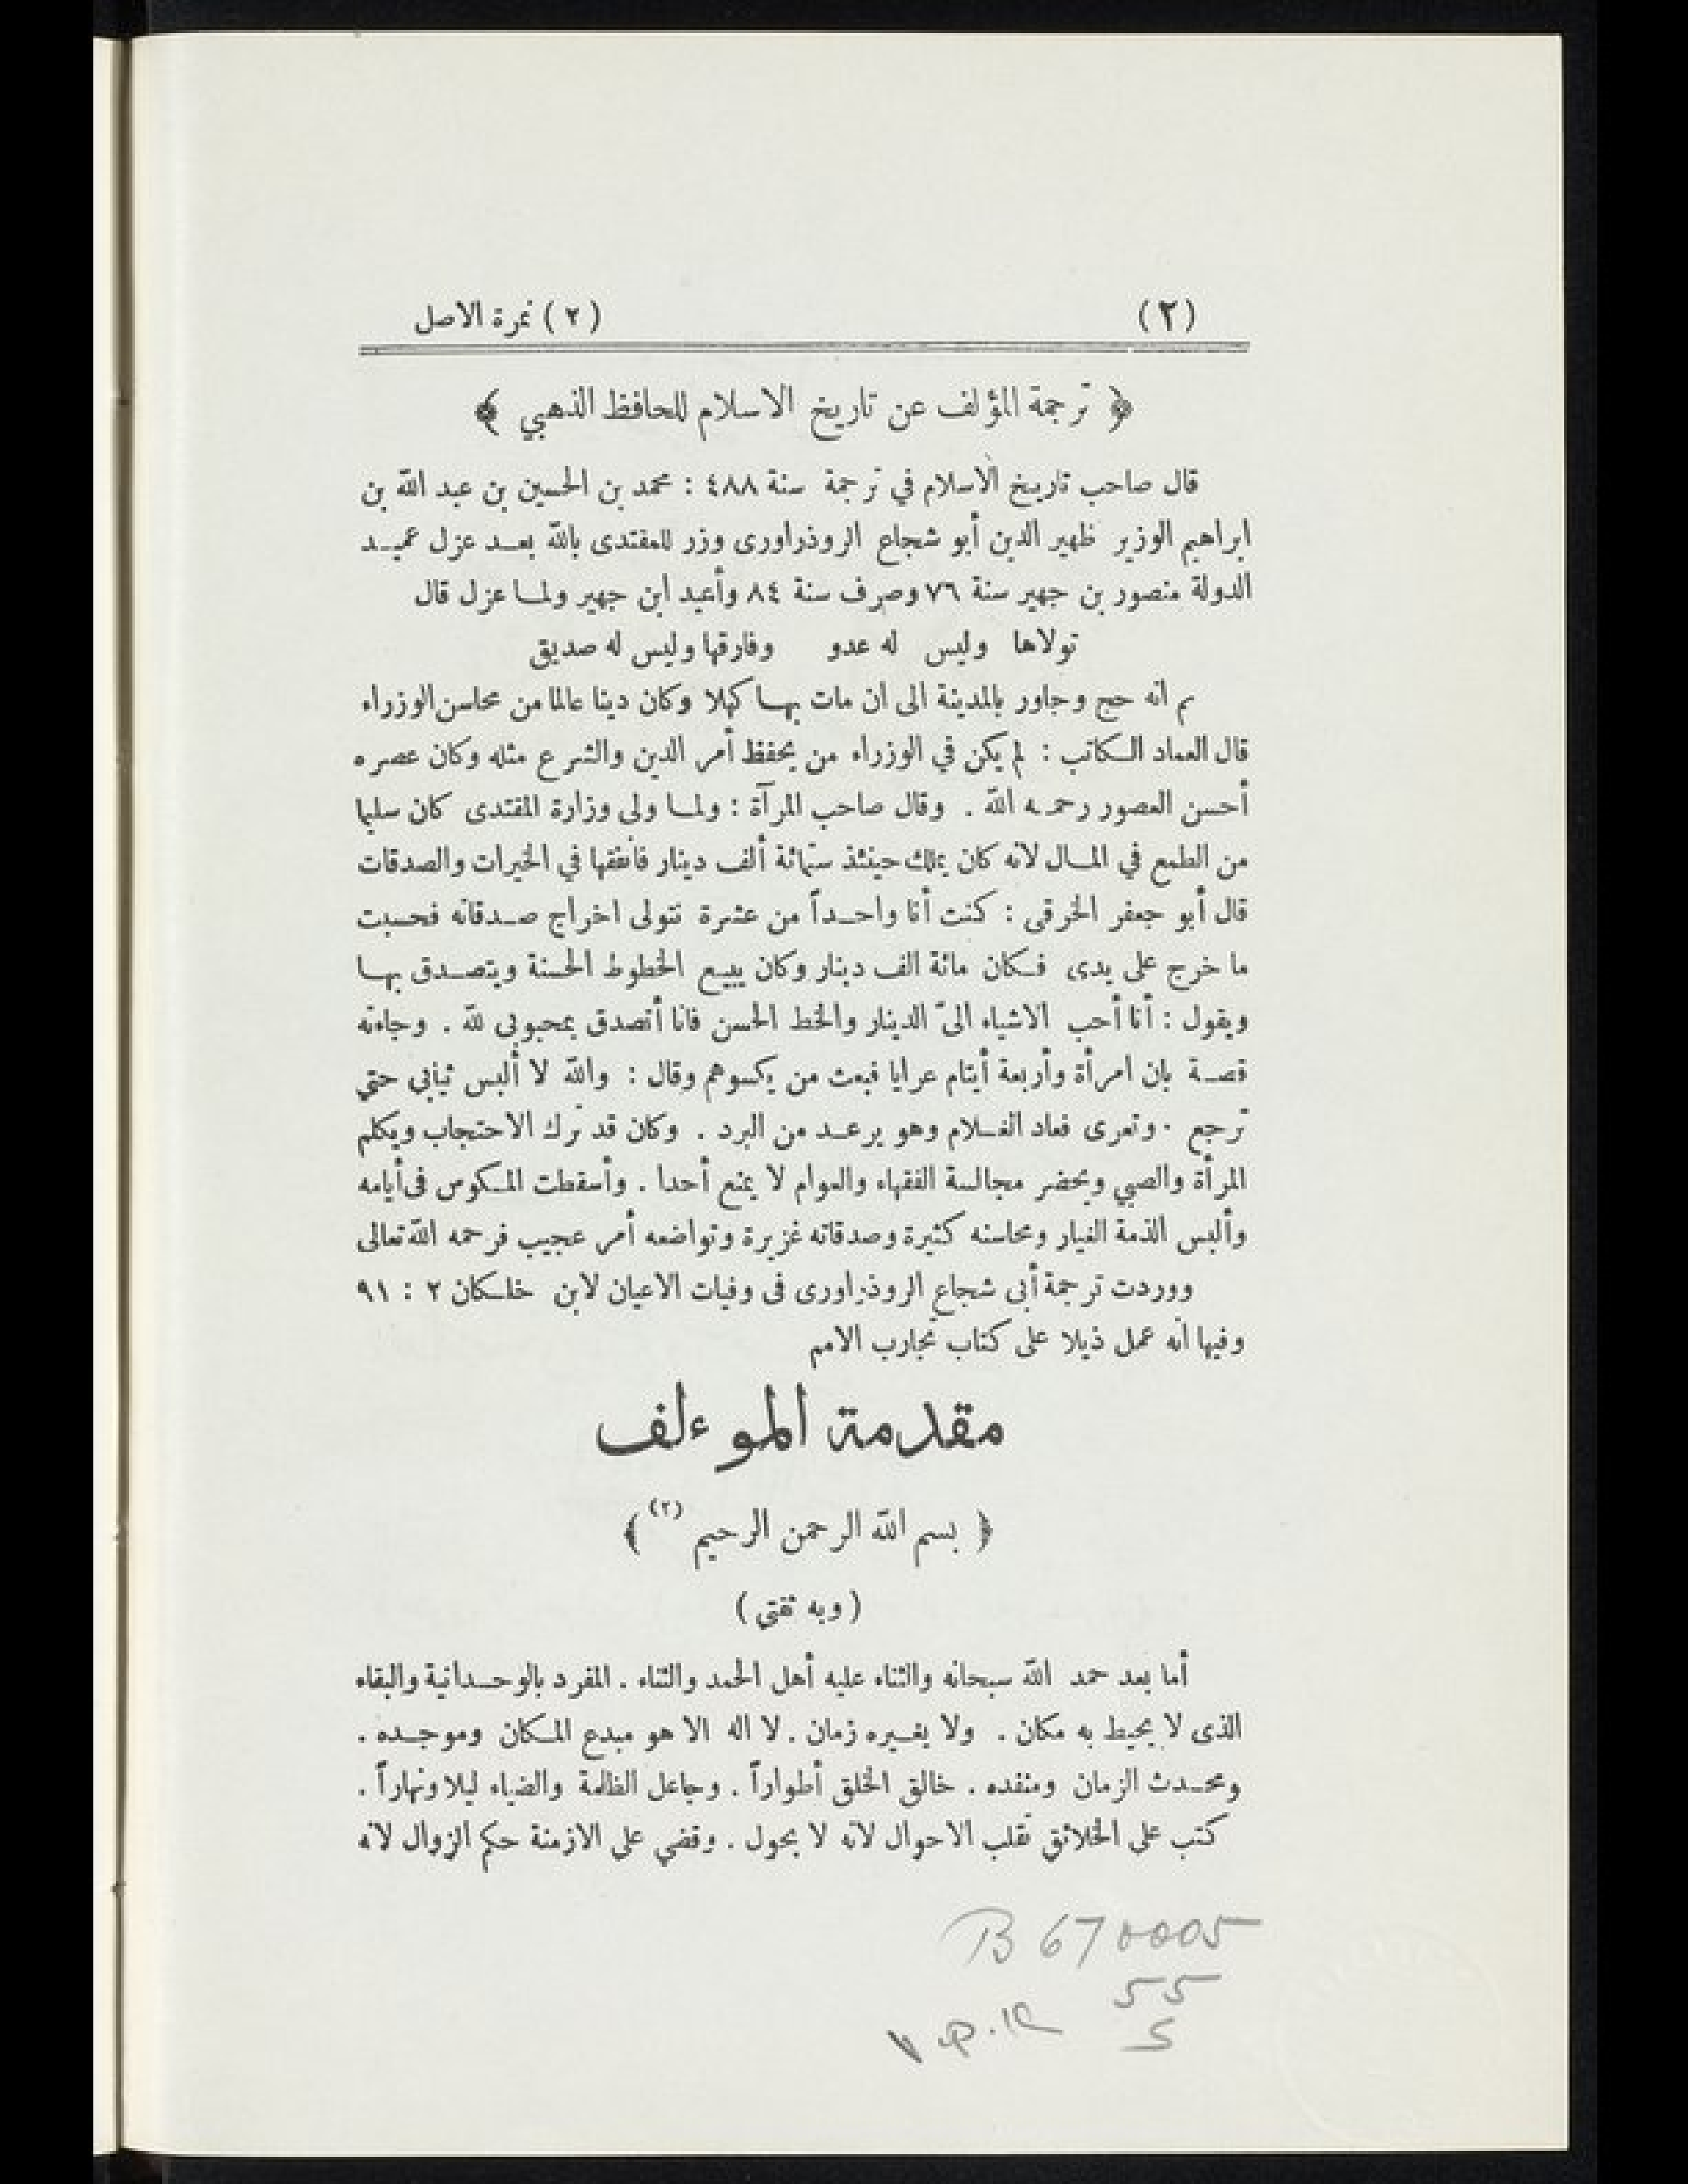 (٢) (٢) نمرة الاصل
﴿ ترجمة المؤلف عن تاريخ الاسلام للحافظ الذهبي ﴾
قال صاحب تاريخ الاسلام في ترجمة سنة ٤٨٨ : محمد بن الحسين بن عبد الله بن
ابراهيم الوزير ظهير الدين أبو شجاع الروذراورى وزر للمقتدى بالله بعد عزل عميد
الدولة منصور بن جهير سنة ٧٦ وصرف سنة ٨٤ وأعيد ابن جهير ولما عزل قال
تولاها وليس له عدو وفارقها وليس له صديق
م انه حج وجاور بالمدينة الى ان مات بها كهلا وكان دينا عالما من محاسن الوزراء
قال العماد الكاتب : لم يكن في الوزراء من يحفظ أمر الدين والشرع مثله وكان عصره
أحسن العصور رحمه الله . وقال صاحب المرآة : ولما ولى وزارة المقتدى كان سليما
من الطمع في المال لانه كان يملك حينئذ ستمائة ألف دينار فانفقها في الخيرات والصدقات
قال أبو جعفر الخرقى : كنت أنا واحداً من عشرة نتولى اخراج صدقاته فحسبت
ما خرج على يدى فكان مائة الف دينار وكان يبيع الخطوط الحسنة ويتصدق بها
ويقول : أنا أحب الاشياء الىّ الدينار والخط الحسن فانا أتصدق بمحبوبى لله . وجاءته
قصة بان امرأة وأربعة أيتام عرايا فبعث من يكسوهم وقال : والله لا ألبس ثيابي حتى
ترجع . وتعرى فعاد الغلام وهو يرعد من البرد . وكان قد ترك الاحتجاب ويكلم
المرأة والصبي ويحضر مجالسة الفقهاء والعوام لا يمنع أحدا . وأسقطت المكوس فى أيامه
وألبس الذمة الغيار ومحاسنه كثيرة وصدقاته غزيرة وتواضعه أمر عجيب فرحمه الله تعالى
ووردت ترجمة أبى شجاع الروذراورى فى وفيات الاعيان لابن خلكان ٢ : ٩١
وفيها انه عمل ذيلا على كتاب تجارب الامم
مقدمة الموءلف
﴿ بسم الله الرحمن الرحيم (٢) ﴾
( وبه ثقتى )
أما بعد حمد الله سبحانه والثناء عليه أهل الحمد والثناء . المفرد بالوحدانية والبقاء
الذى لا يحيط به مكان . ولا يغيره زمان . لا اله الا هو مبدع المكان وموجده .
ومحدث الزمان ومنفده . خالق الخلق أطواراً . وجاعل الظلمة والضياء ليلا ونهاراً .
كتب على الخلائق تقلب الاحوال لانه لا يحول . وقضي على الازمنة حكم الزوال لانه
B 670005
55
5